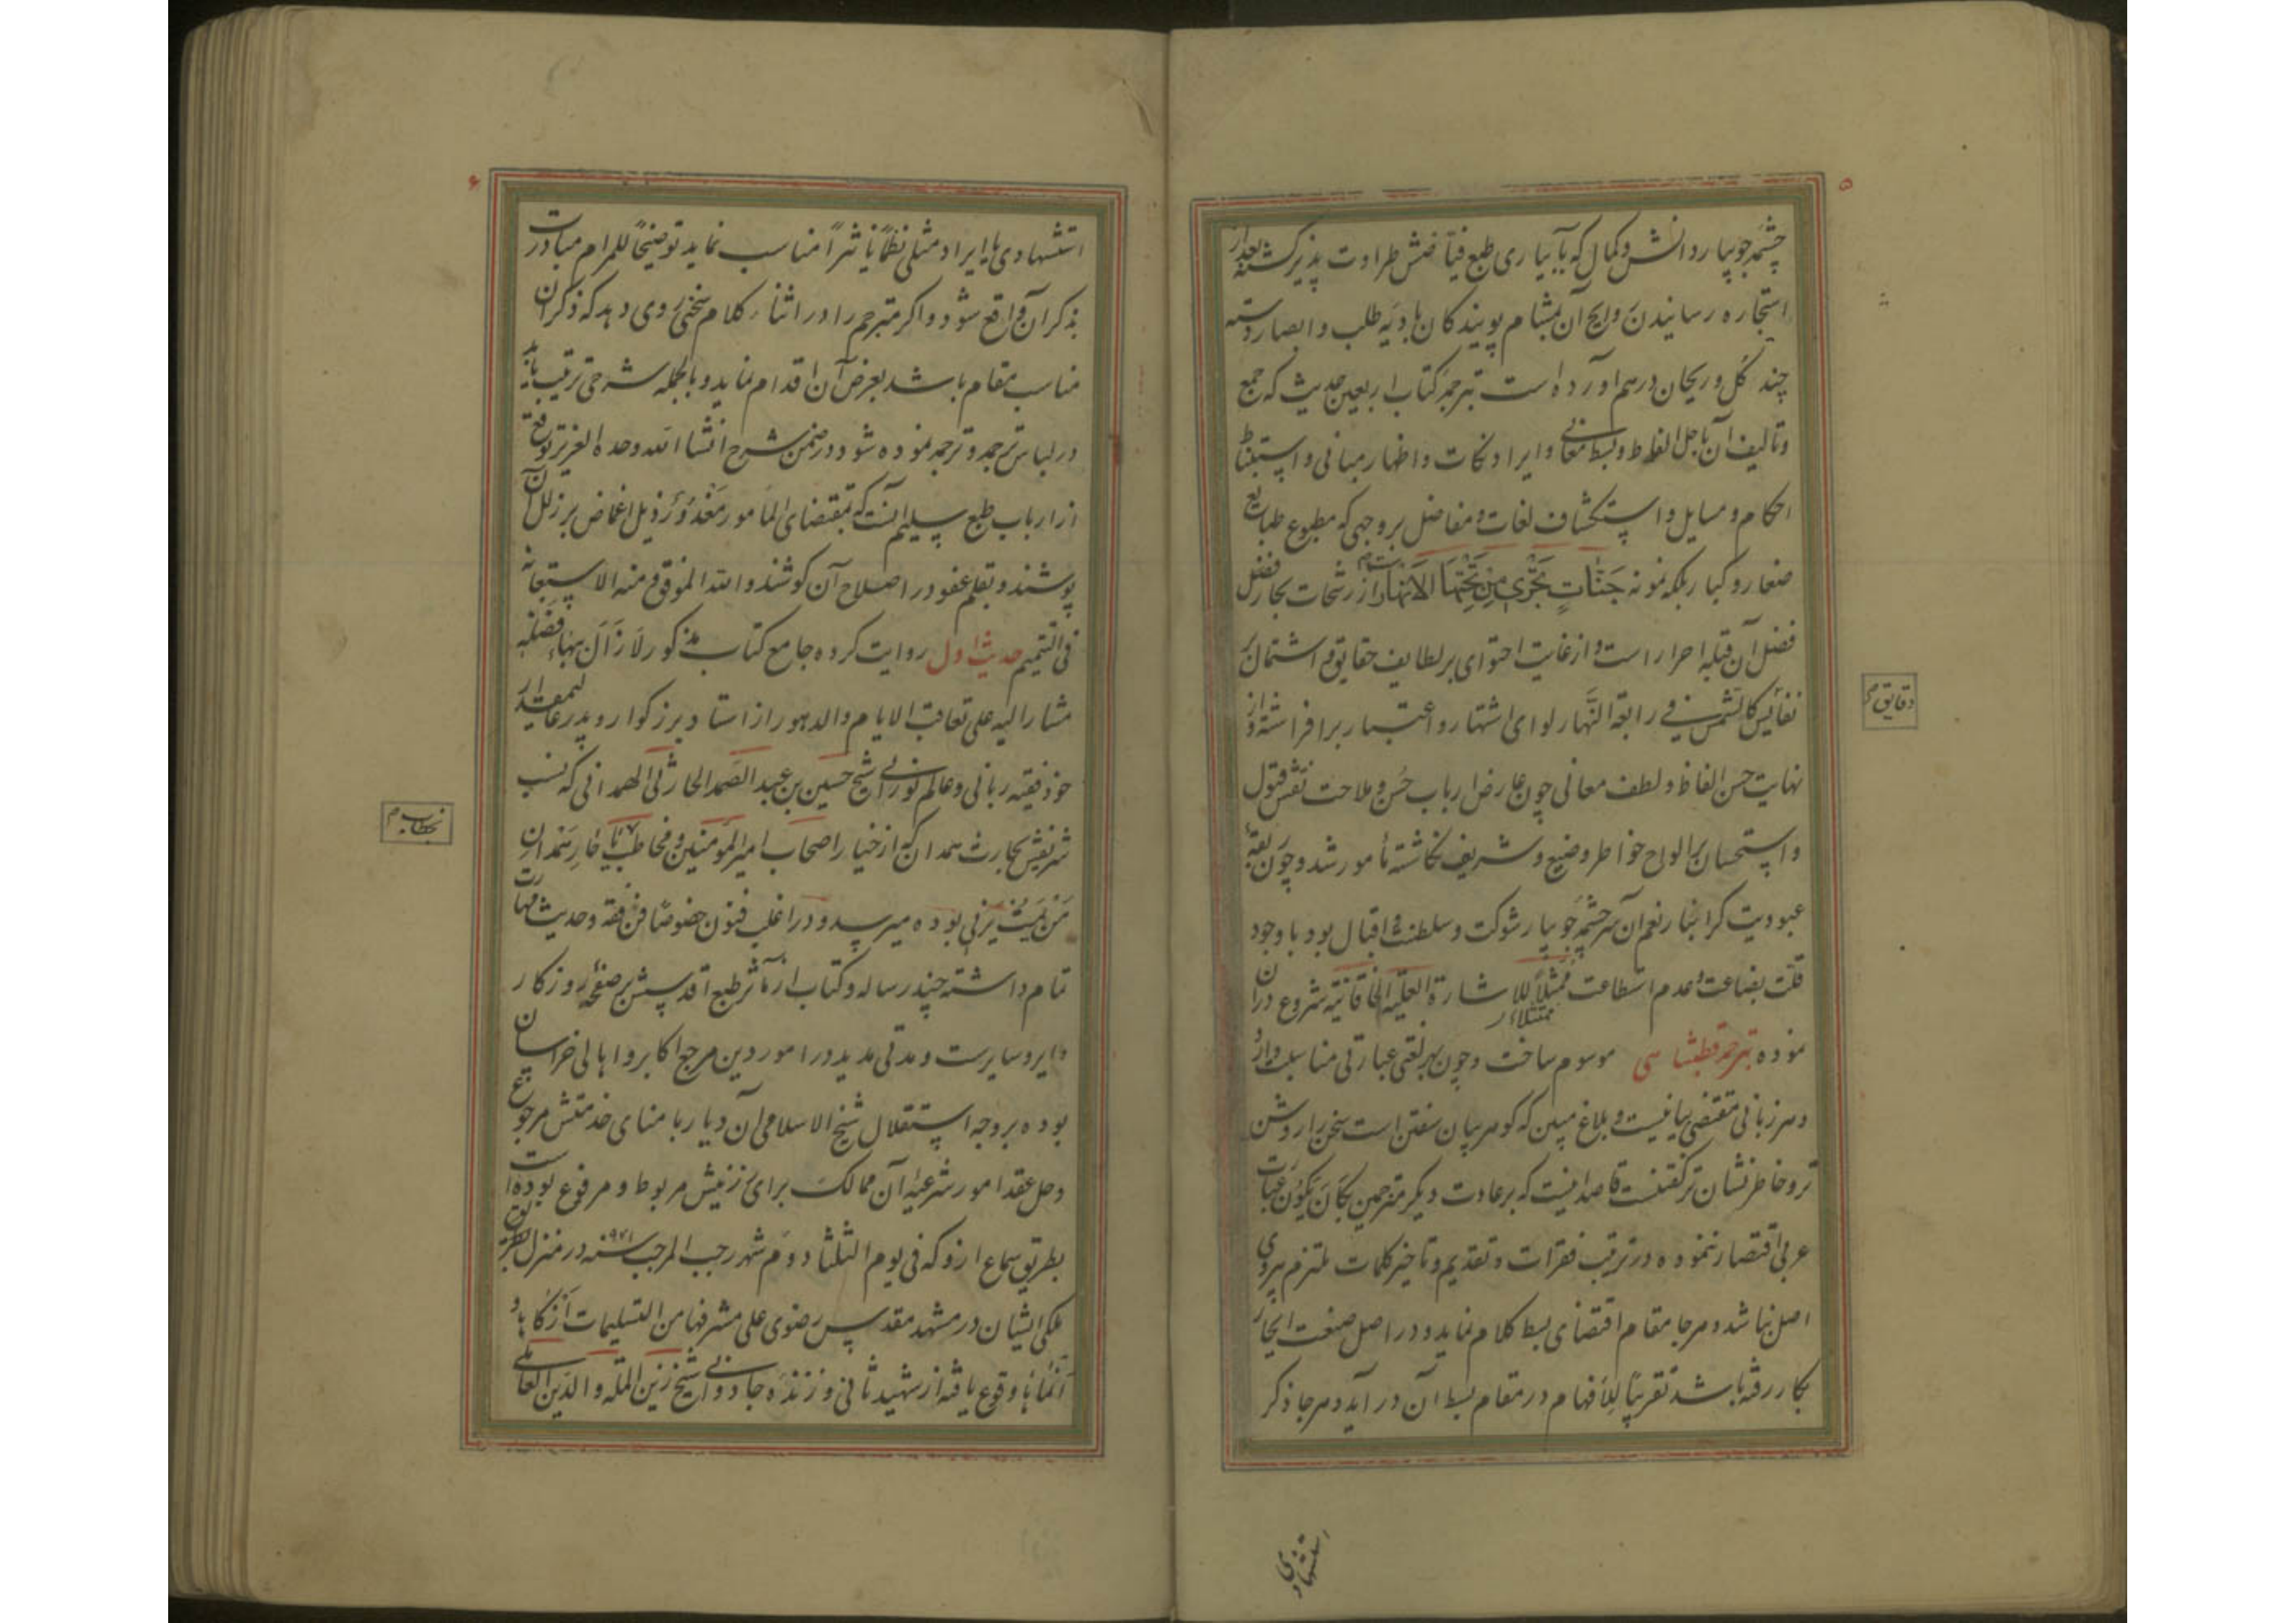 ۵
چشمه جویبار دانش و کمال که بآبیاری طبع فیّاضش طراوت پذیر گشته بعد از
استجازه رسانیدن روایح آن بمشام پویندگان بادیه طلب و ابصار دسته
چند گل و ریحان درهم آورده است بترجمه کتاب اربعین حدیث که جمع
و تالیف آن باحل الفاظ و بسط معانی و ایراد نکات و اظهار مبانی و استنباط
احکام و مسایل و استکشاف لغات و مفاصل بروجهی که مطبوع طبایع
صغار و کبار بلکه نمونه جَنّاتٍ تَجْری مِنْ تَحْتِهَا الاَنْهار از رشحات بحار فضل
فضل آن قبله احرار است و از غایت احتوای بر لطایف حقایق و اشتمال بر
نفایس کالشمس فی رابعة النّهار لوای اشتهار و اعتبار برافراشته و از
دقایق م
نهایت حسن الفاظ و لطف معانی چون عارض ارباب حُسن و ملاحت نقش قبول
و استحسان بر الواح خواطر وضیع و شریف نگاشته مأمور شد و چون رقبهٔ
عبودیت گرانبار نعم آن سرچشمه جویبار شوکت و سلطنت و اقبال بود با وجود
قلت بضاعت و عدم استطاعت ممتثلاً للاشارة العلیّه الخاقانیّه شروع در آن
ممتثلا ر
نموده بترجمه قطبشاهی موسوم ساخت و چون هر لغتی عبارتی مناسب دارد
و هر زبانی مقتضی بیانیست و بلاغ مبین که گوهر بیان سفتن است سخن را روشن
تر و خاطر نشان تر گفتنست قاصدا نیست که بر عادت دیگر مترجمین بکَانَ یَکونُ عبارت
عربی اقتصار ننموده در ترتیب فقرات و تقدیم و تاخیر کلمات ملتزم پیروی
اصل نباشد و هر جا مقام اقتضای بسط کلام نماید و در اصل صنعت ایجاز
بکار رفته باشد تقریباً للافهام در مقام بسط آن در آید و هر جا ذکر
استشهادی
۶
استشهادی یا ایراد مثلی نظماً یا نثراً مناسب نماید توضیحاً للمرام مبادرت
بذکر آن واقع شود و اگر مترجم را در اثناء کلام سخنی روی دهد که ذکر آن
مناسب مقام باشد بعرض آن اقدام نماید و بالجمله شرحی ترتیب یابد
در لباس ترجمه و ترجمه نموده شود در ضمن شرح انشا الله وحده العزیز توقع
از ارباب طبع سلیم آنست که بمقتضای المأمور مَعْذُورٌ ذیل اغماض بر زلل آن
پوشند و بقلم عفو در اصلاح آن کوشند والله الموفق و منه الاستعانه
فی التتمیم حدیث اول روایت کرده جامع کتاب مذکور لازَالَ بهاء فَضْلِه
مشارا الیه علی تعاقب الایام و الدهور از استاد بزرگوار و پدر عالیمقدار
خود فقیه ربانی و عالم نورانی شیخ حسین بن عبد الصّمد الحارثی الهمدانی که نسب
شریفش بحارث همدان که از خیار اصحاب امیر المؤمنین و مخاطب یا حار همدان
بخطاب م
مَن یَمُت یَرَنی بوده میرسد و در اغلب فنون خصوصا فن فقه و حدیث مهارت
تمام داشته چند رساله و کتاب از مآثر طبع اقدسش بر صفحه روزگار
دایر و سایرست و مدتی مدید در امور دین مرجع اکابر و اهالی خراسان
بوده بروجه استقلال شیخ الاسلامی آن دیار با مناى خدمتش مرجوع
و حل عقد امور شرعیه آن ممالک برای رزینش مربوط و مرفوع بوده است
بطریق سماع ازو که فی یوم الثلثا دوم شهر رجب المرجب سنه ۹۷۱ در منزل بطریق
ملکی ایشان در مشهد مقدس رضوی علی مشرفها من التسلیمات اَزکاها و
اَنماها وقوع یافته از شهید ثانی و زنده جاودانی شیخ زین الملة و الدّین العاملی